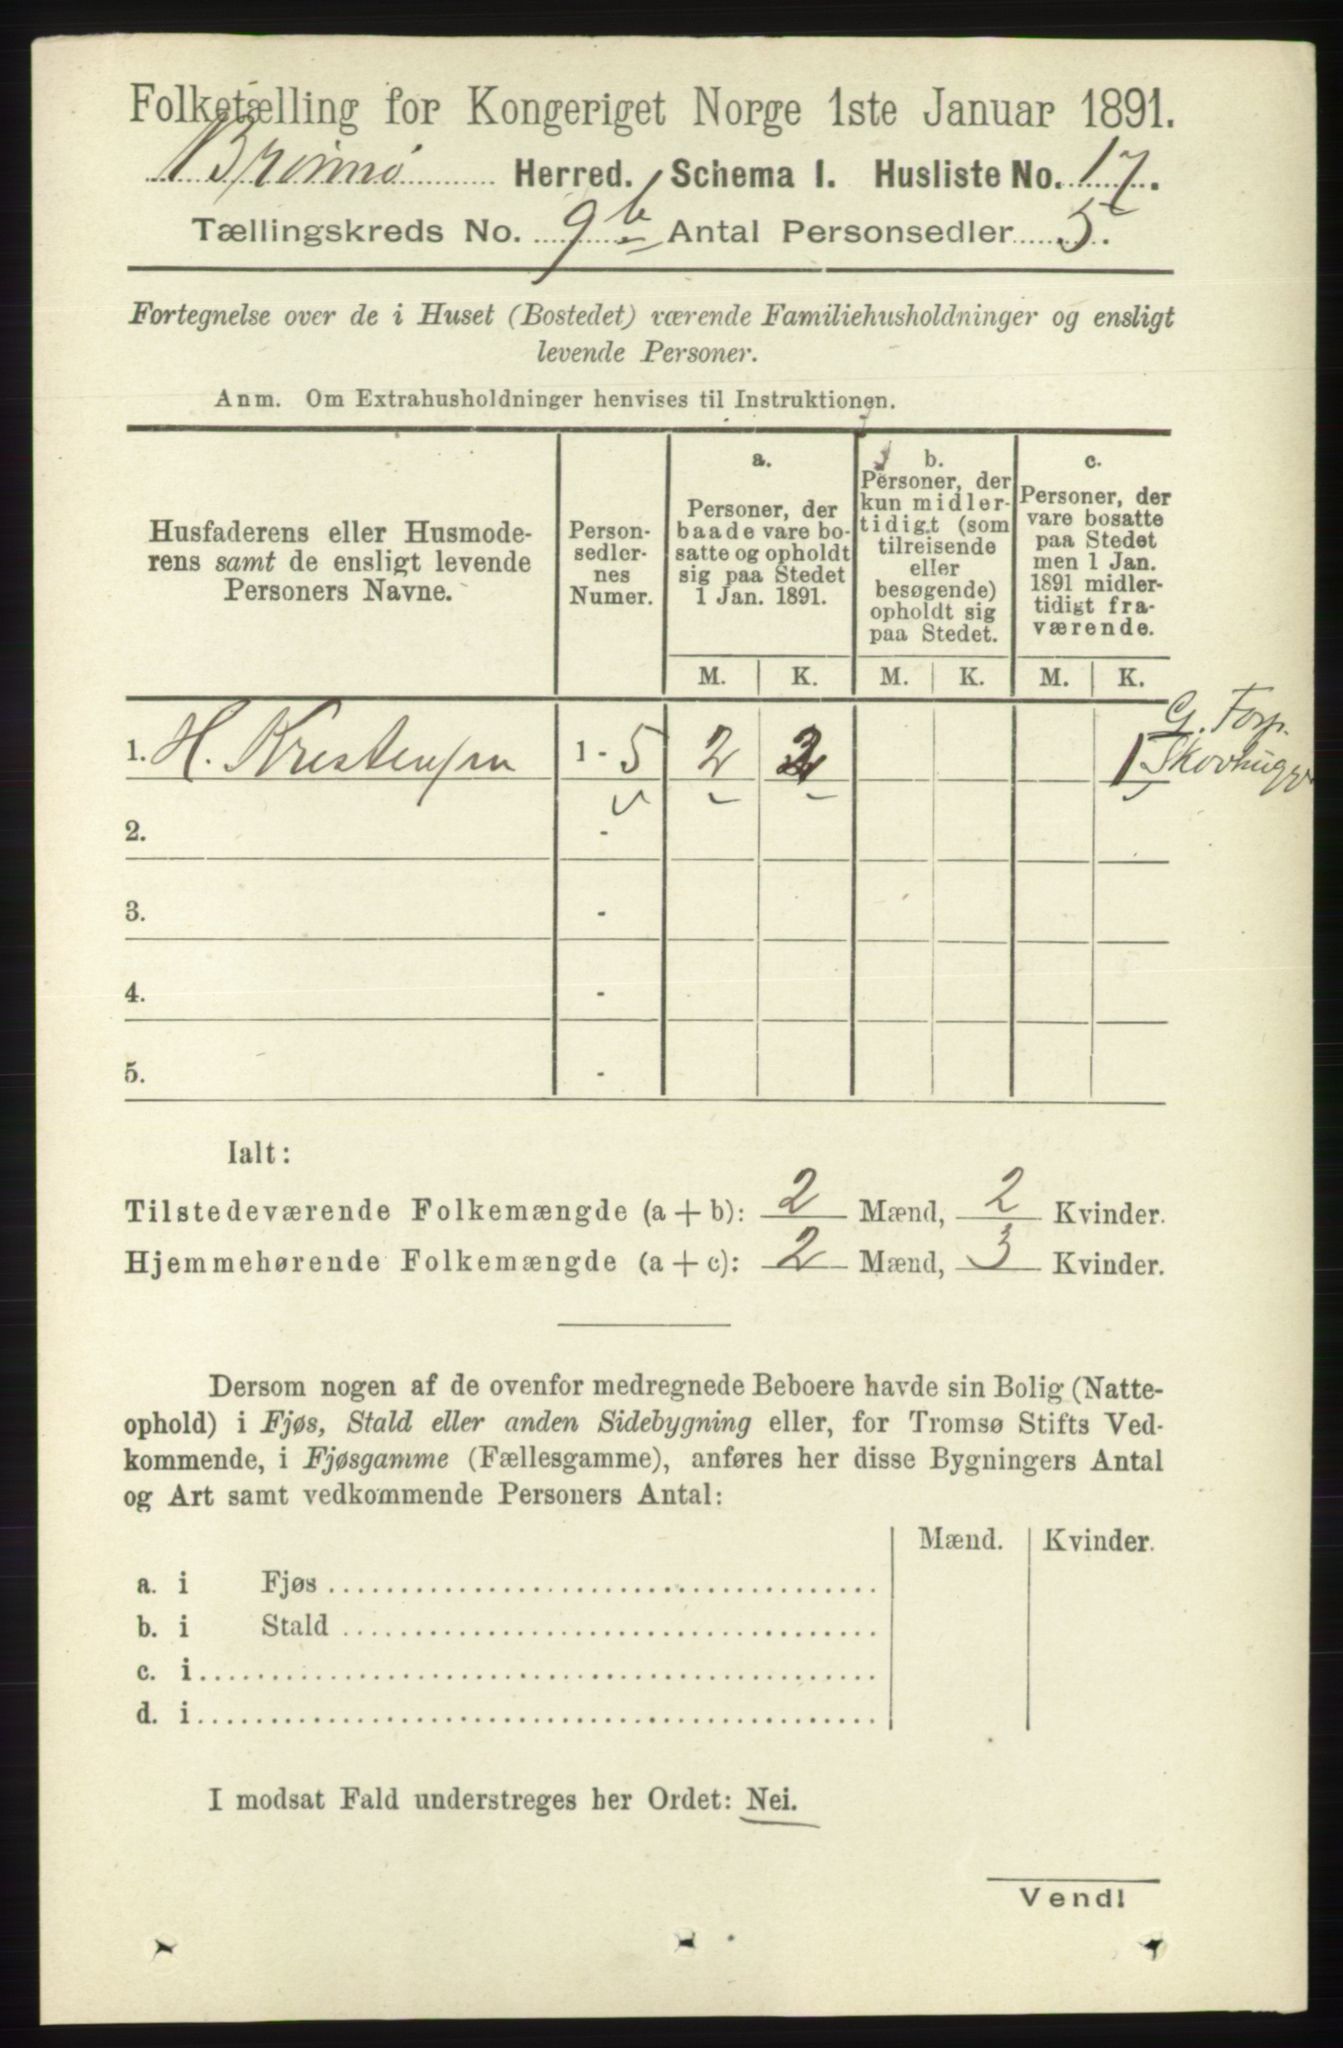 Folketælling for Kongeriget Norge 1ste Januar 1891.
Brønnø Herred. Schema I. Husliste No. 17.
Tællingskreds No. 9b Antal Personsedler 5.
Fortegnelse over de i Huset (Bostedet) værende Familiehusholdninger og ensligt
levende Personer.
Anm. Om Extrahusholdninger henvises til Instruktionen.
Husfaderens eller Husmode-
rens samt de ensligt levende
Personers Navne.
Person-
sedler-
nes
Numer.
a.
Personer, der
baade vare bo-
satte og opholdt
sig paa Stedet
1 Jan. 1891.
b.
Personer, der
kun midler-
tidigt (som
tilreisende
eller
besøgende)
opholdt sig
paa Stedet.
c.
Personer, der
vare bosatte
paa Stedet
men 1 Jan.
1891 midler-
tidigt fra-
værende.
M. K. M. K. M. K.
1. H. Krestensen 1 - 5 2 2 1 G. Torp.
2. -
3. -
4. -
5. -
Ialt:
Tilstedeværende Folkemængde (a + b): 2 Mænd, 2 Kvinder.
Hjemmehørende Folkemængde (a + c): 2 Mænd, 3 Kvinder.
Dersom nogen af de ovenfor medregnede Beboere havde sin Bolig (Natte-
ophold) i Fjøs, Stald eller anden Sidebygning eller, for Tromsø Stifts Ved-
kommende, i Fjøsgamme (Fællesgamme), anføres her disse Bygningers Antal
og Art samt vedkommende Personers Antal:
Mænd. Kvinder.
a. i Fjøs
b. i Stald
c. i
d. i
I modsat Fald understreges her Ordet: Nei.
Vend!